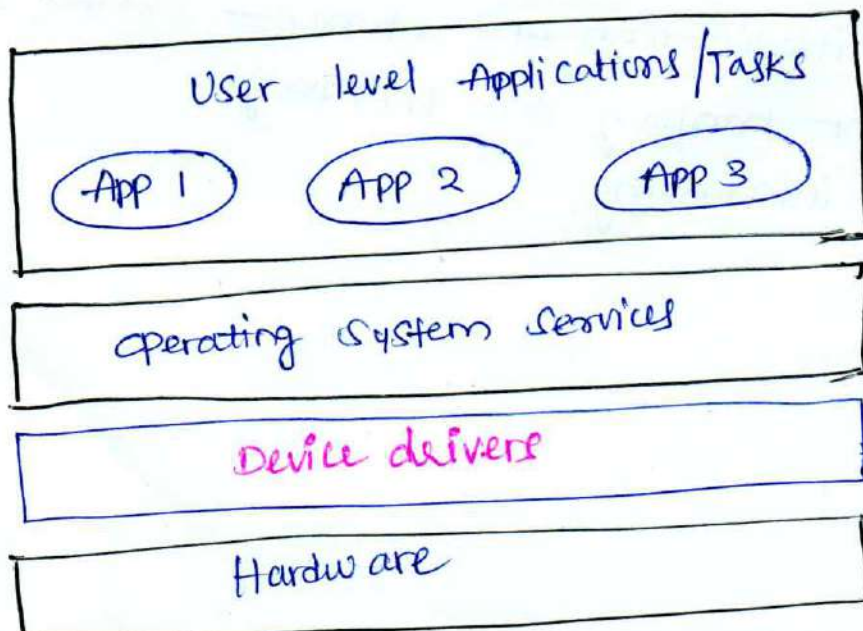 User level Applications/Tasks
App 1 App 2 App 3
Operating System Services
Device drivers
Hardware